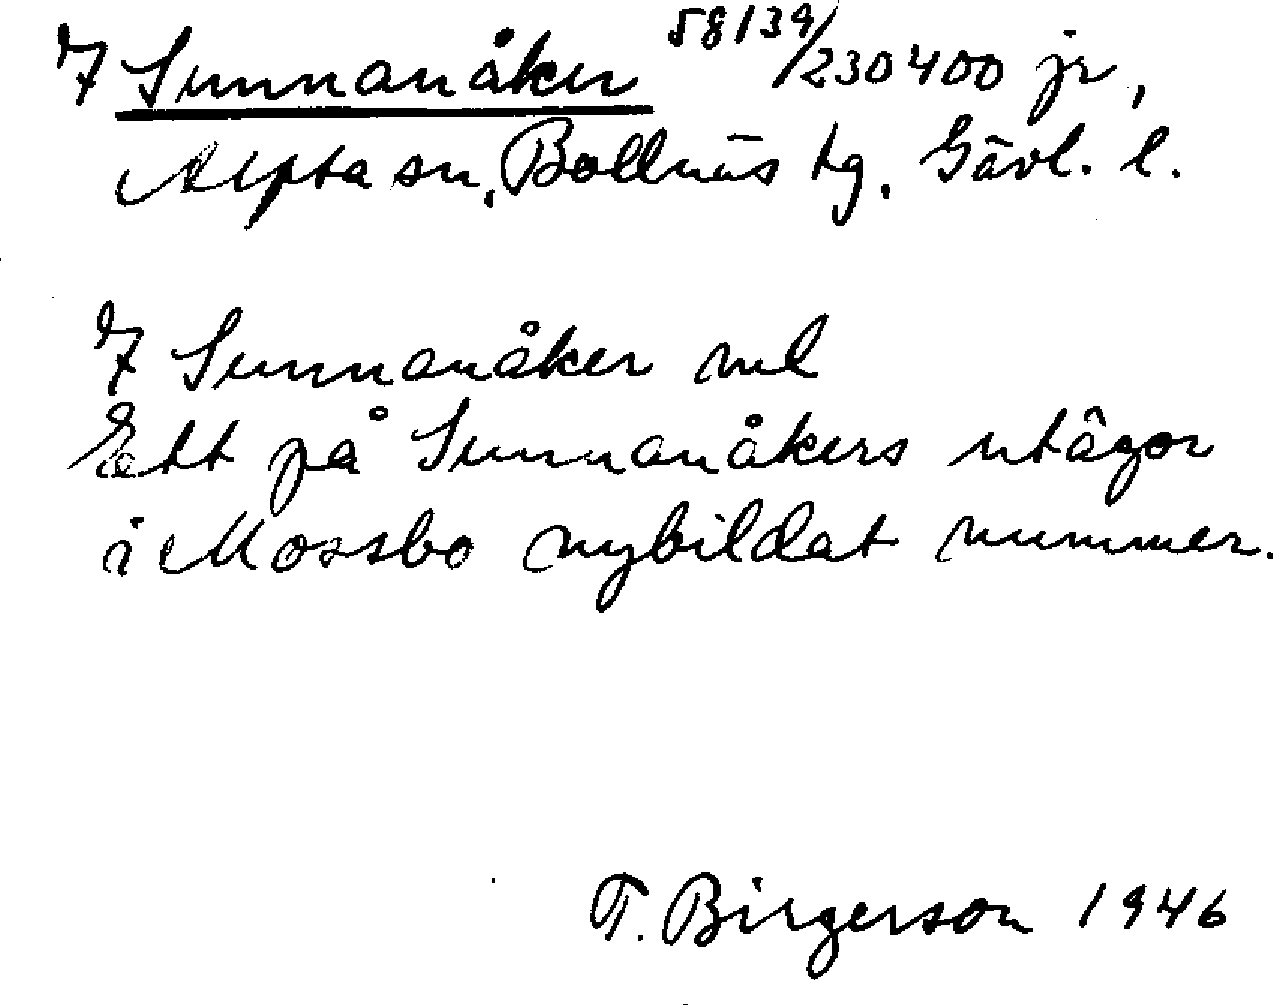 7 Sunnanåker 58139/230400 jr,
Alfta sn, Bollnäs tg. Gävl. l.
7 Sunnanåker ml
Ett på Sunnanåkers utägor
i Mossbo nybildat nummer.
T. Birgerson 1946